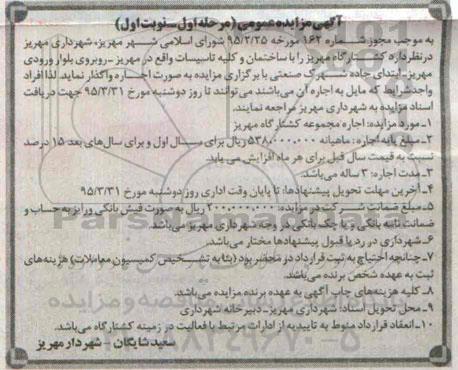 آگهی مزایده عمومی (مرحله اول - نوبت اول)
به موجب مجوز شماره ۱۶۲ مورخه ۹۵/۲/۲۵ شورای اسلامی شهر مهریز، شهرداری مهریز
درنظردارد کشتارگاه مهریز را با ساختمان و کلیه تاسیسات واقع در مهریز - روبروی بلوار ورودی
مهریز - ابتدای جاده شهرک صنعتی با برگزاری مزایده به صورت اجاره واگذار نماید. لذا افراد
واجد شرایط که مایل به اجاره آن می‌باشند می‌توانند تا روز دوشنبه مورخ ۹۵/۳/۳۱ جهت دریافت
اسناد مزایده به شهرداری مهریز مراجعه نمایند.
۱- مورد مزایده: اجاره مجموعه کشتارگاه مهریز
۲- مبلغ پایه اجاره: ماهیانه ۵۳۸۰۰۰۰۰۰ ریال برای سال اول و برای سال‌های بعد ۱۵ درصد
نسبت به قیمت سال قبل برای هر ماه افزایش می یابد.
۳- مدت اجاره: ۳ ساله می‌باشد.
۴- آخرین مهلت تحویل پیشنهادها: تا پایان وقت اداری روز دوشنبه مورخ ۹۵/۳/۳۱
۵- مبلغ ضمانت شرکت در مزایده: ۲۰۰,۰۰۰,۰۰۰ ریال به صورت فیش بانکی واریز به حساب و
ضمانت نامه بانکی و یا چک بانکی در وجه شهرداری مهریز می‌باشد.
۶- شهرداری در رد یا قبول پیشنهادها مختار می‌باشد.
۷- چنانچه احتیاج به ثبت قرارداد در محضر بود (بنا به تشخیص کمیسیون معاملات) هزینه‌های
ثبت به عهده شخص برنده می‌باشد.
۸- کلیه هزینه‌های چاپ آگهی به عهده برنده مزایده می‌باشد.
۹- محل تحویل اسناد: شهرداری مهریز - دبیرخانه شهرداری
۱۰- انعقاد قرارداد منوط به تاییدیه از ادارات مرتبط با فعالیت در زمینه کشتارگاه می‌باشد.
سعید شایگان - شهردار مهریز